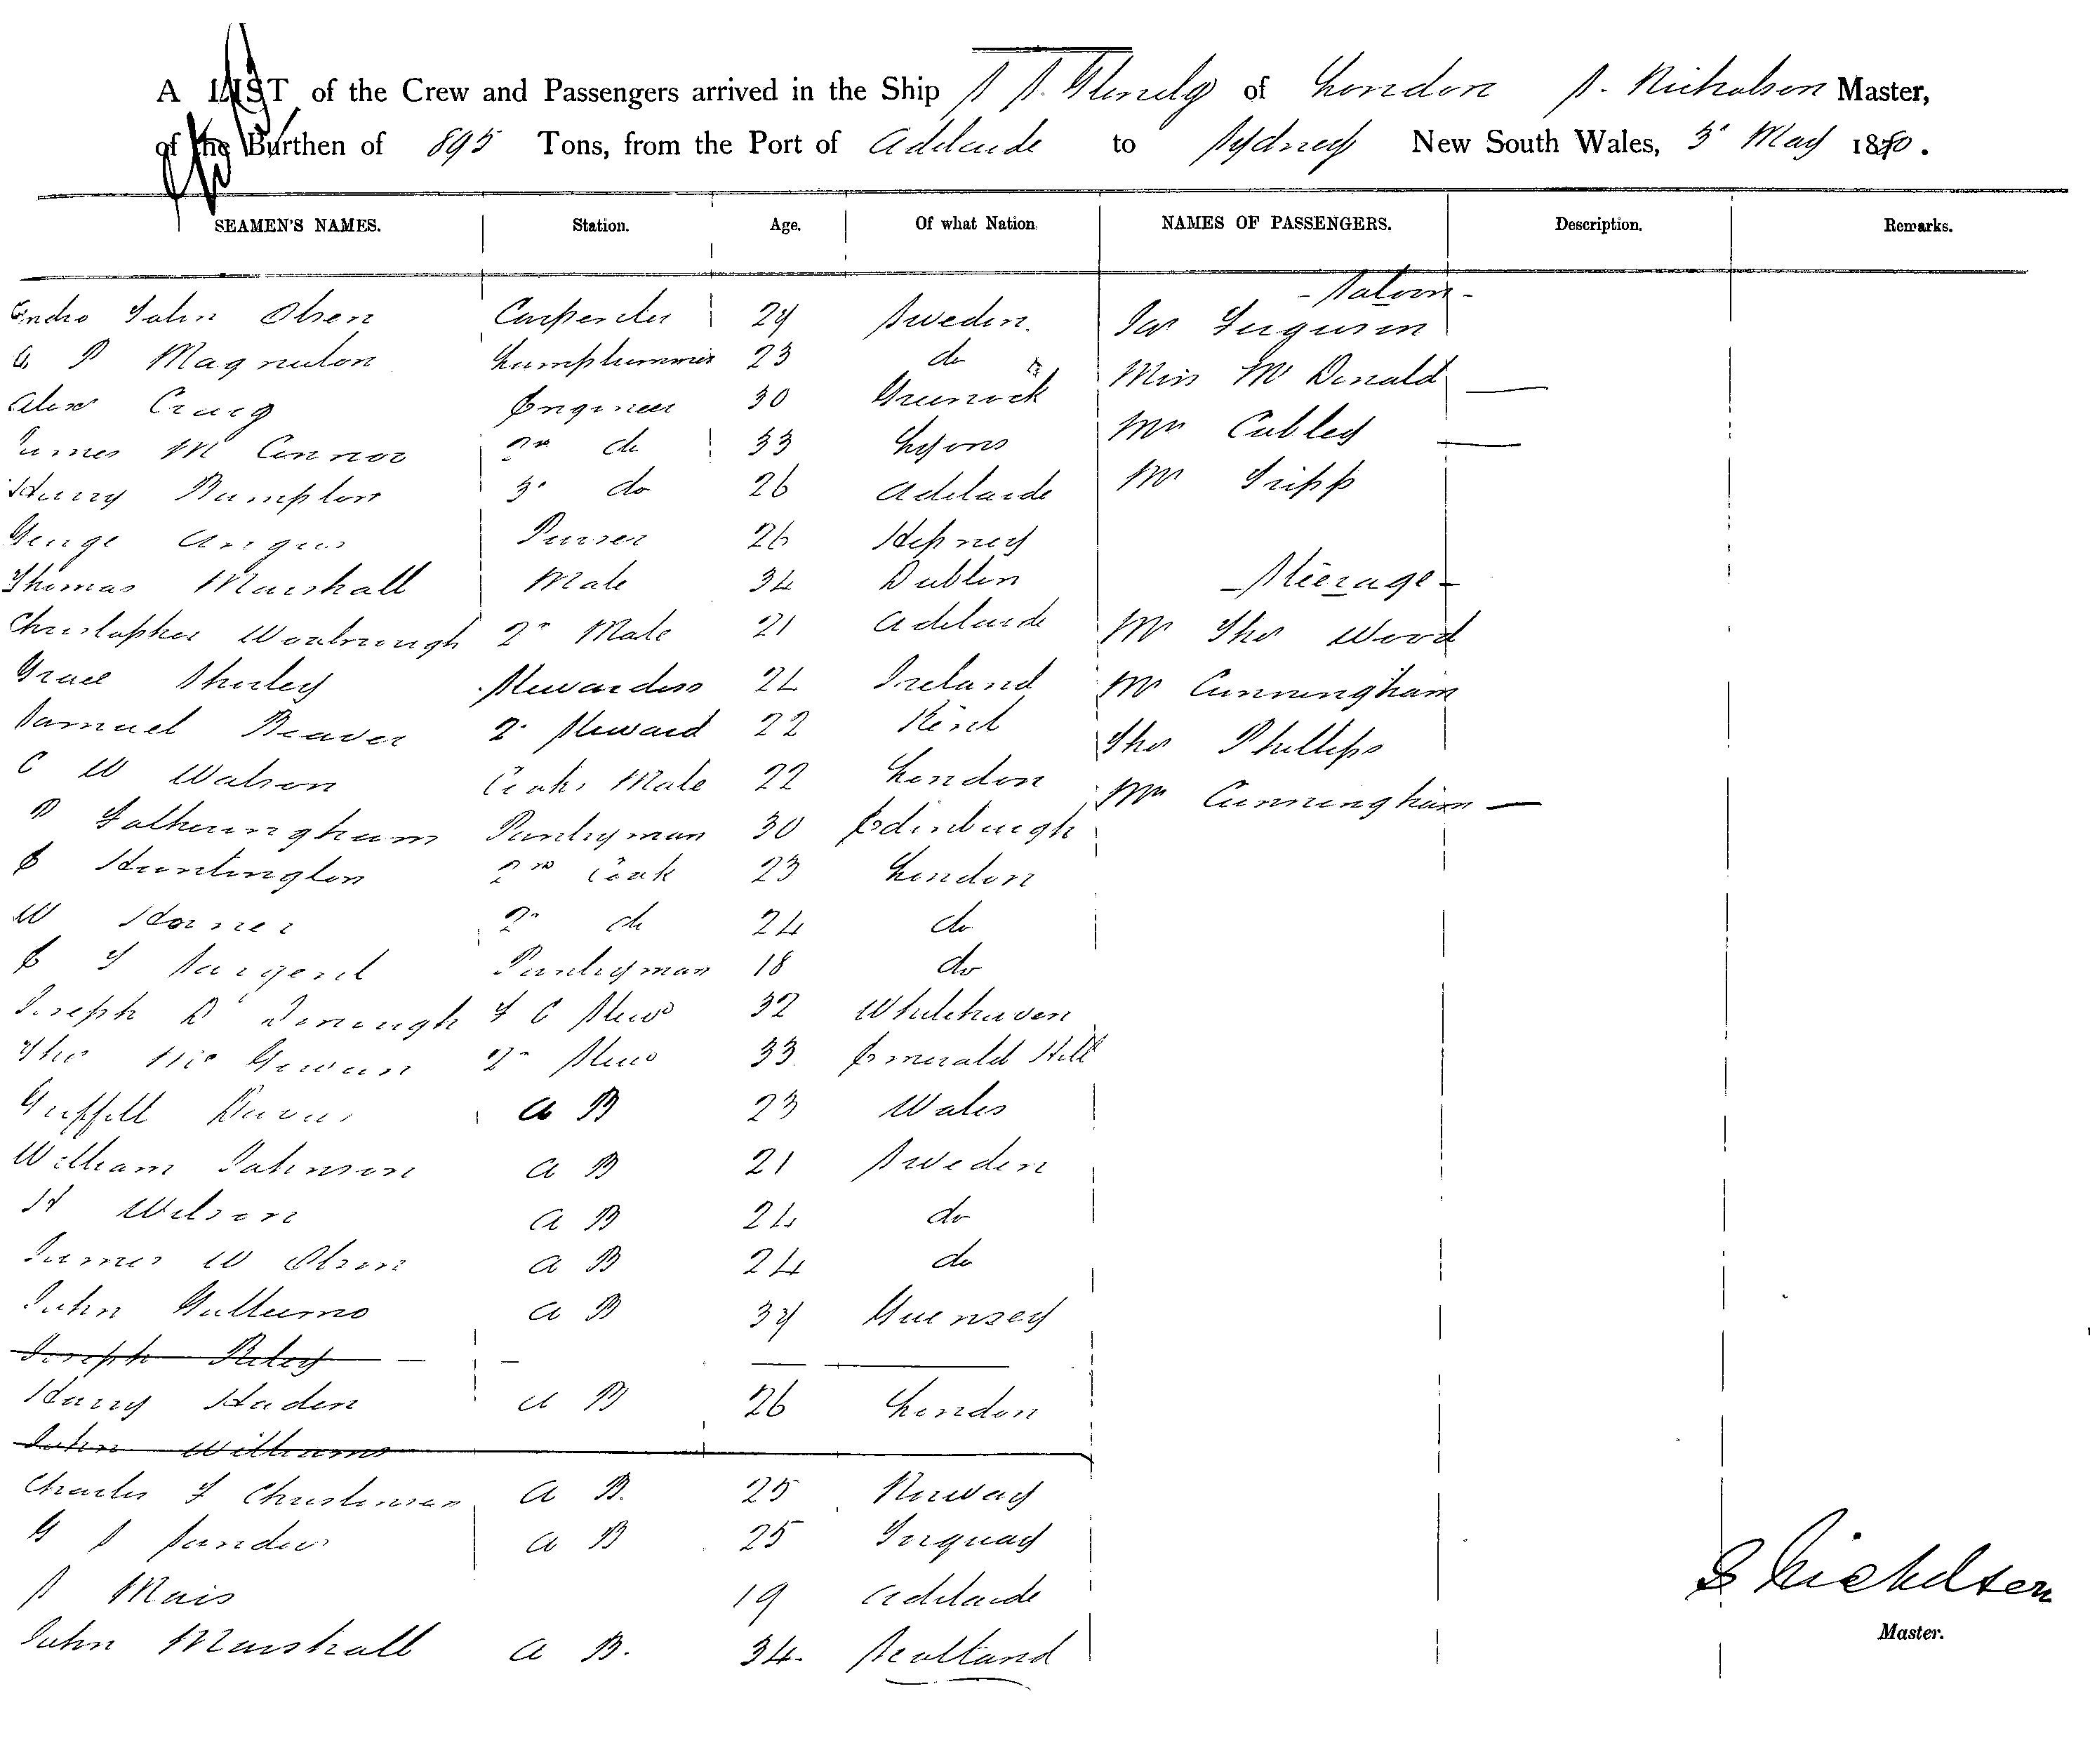 A LIST of the Crew and Passengers arrived in the Ship S S. Glenelg of London S. Nicholson Master,
of the Burthen of 895 Tons, from the Port of Adelaide to Sydney New South Wales, 5 May 1880.
SEAMEN'S NAMES. Station. Age. Of what Nation. NAMES OF PASSENGERS. Description. Remarks.
- Saloon -
John Olsen Carpenter 29 Sweden. Jas Ferguson
P 23 do Miss Mc Donald
Alexr Craig Engineer 30 Greenock
James Mc Connor 2nd do 33 Lyons Mrs Cubley
Harry Bumpton 3 do 26 Adelaide Mr Tripp
George Angus Purser 26 Stepney
Thomas Marshall Mate 34 Dublin - Steerage -
Christopher 2nd Mate 21 Adelaide Mr Thos Wood
Grace Shirley Stewardess 24 Ireland Mr Cunningham
Samuel Beaver 2 Steward 22 Kent Thos Phillips
C W Watson Cooks Mate 22 London Mrs Cunningham
Fotheringham Pantryman 30 Edinburgh
E Huntington 2nd Cook 23 London
W Horner 2 do 24 do
E J Sargent Pantryman 18 do
Joseph Donough F C Stewd 32 Whitehaven
Thos Mc Gowan 2 Stew 33 Emerald Hill
Griffith A B 23 Wales
William Johnson A B 21 Sweden
H Wilson A B 24 do
James W Olsen A B 24 do
John A B 39 Guensey
Joseph Riley
Harry Haden A B 26 London
John Williams
Charles F Christensen A B. 25 Norway
G S A B 25 Torquay
S Mais 19 Adelaide
John Marshall A B. 34. Scotland
S Nicholson
Master.